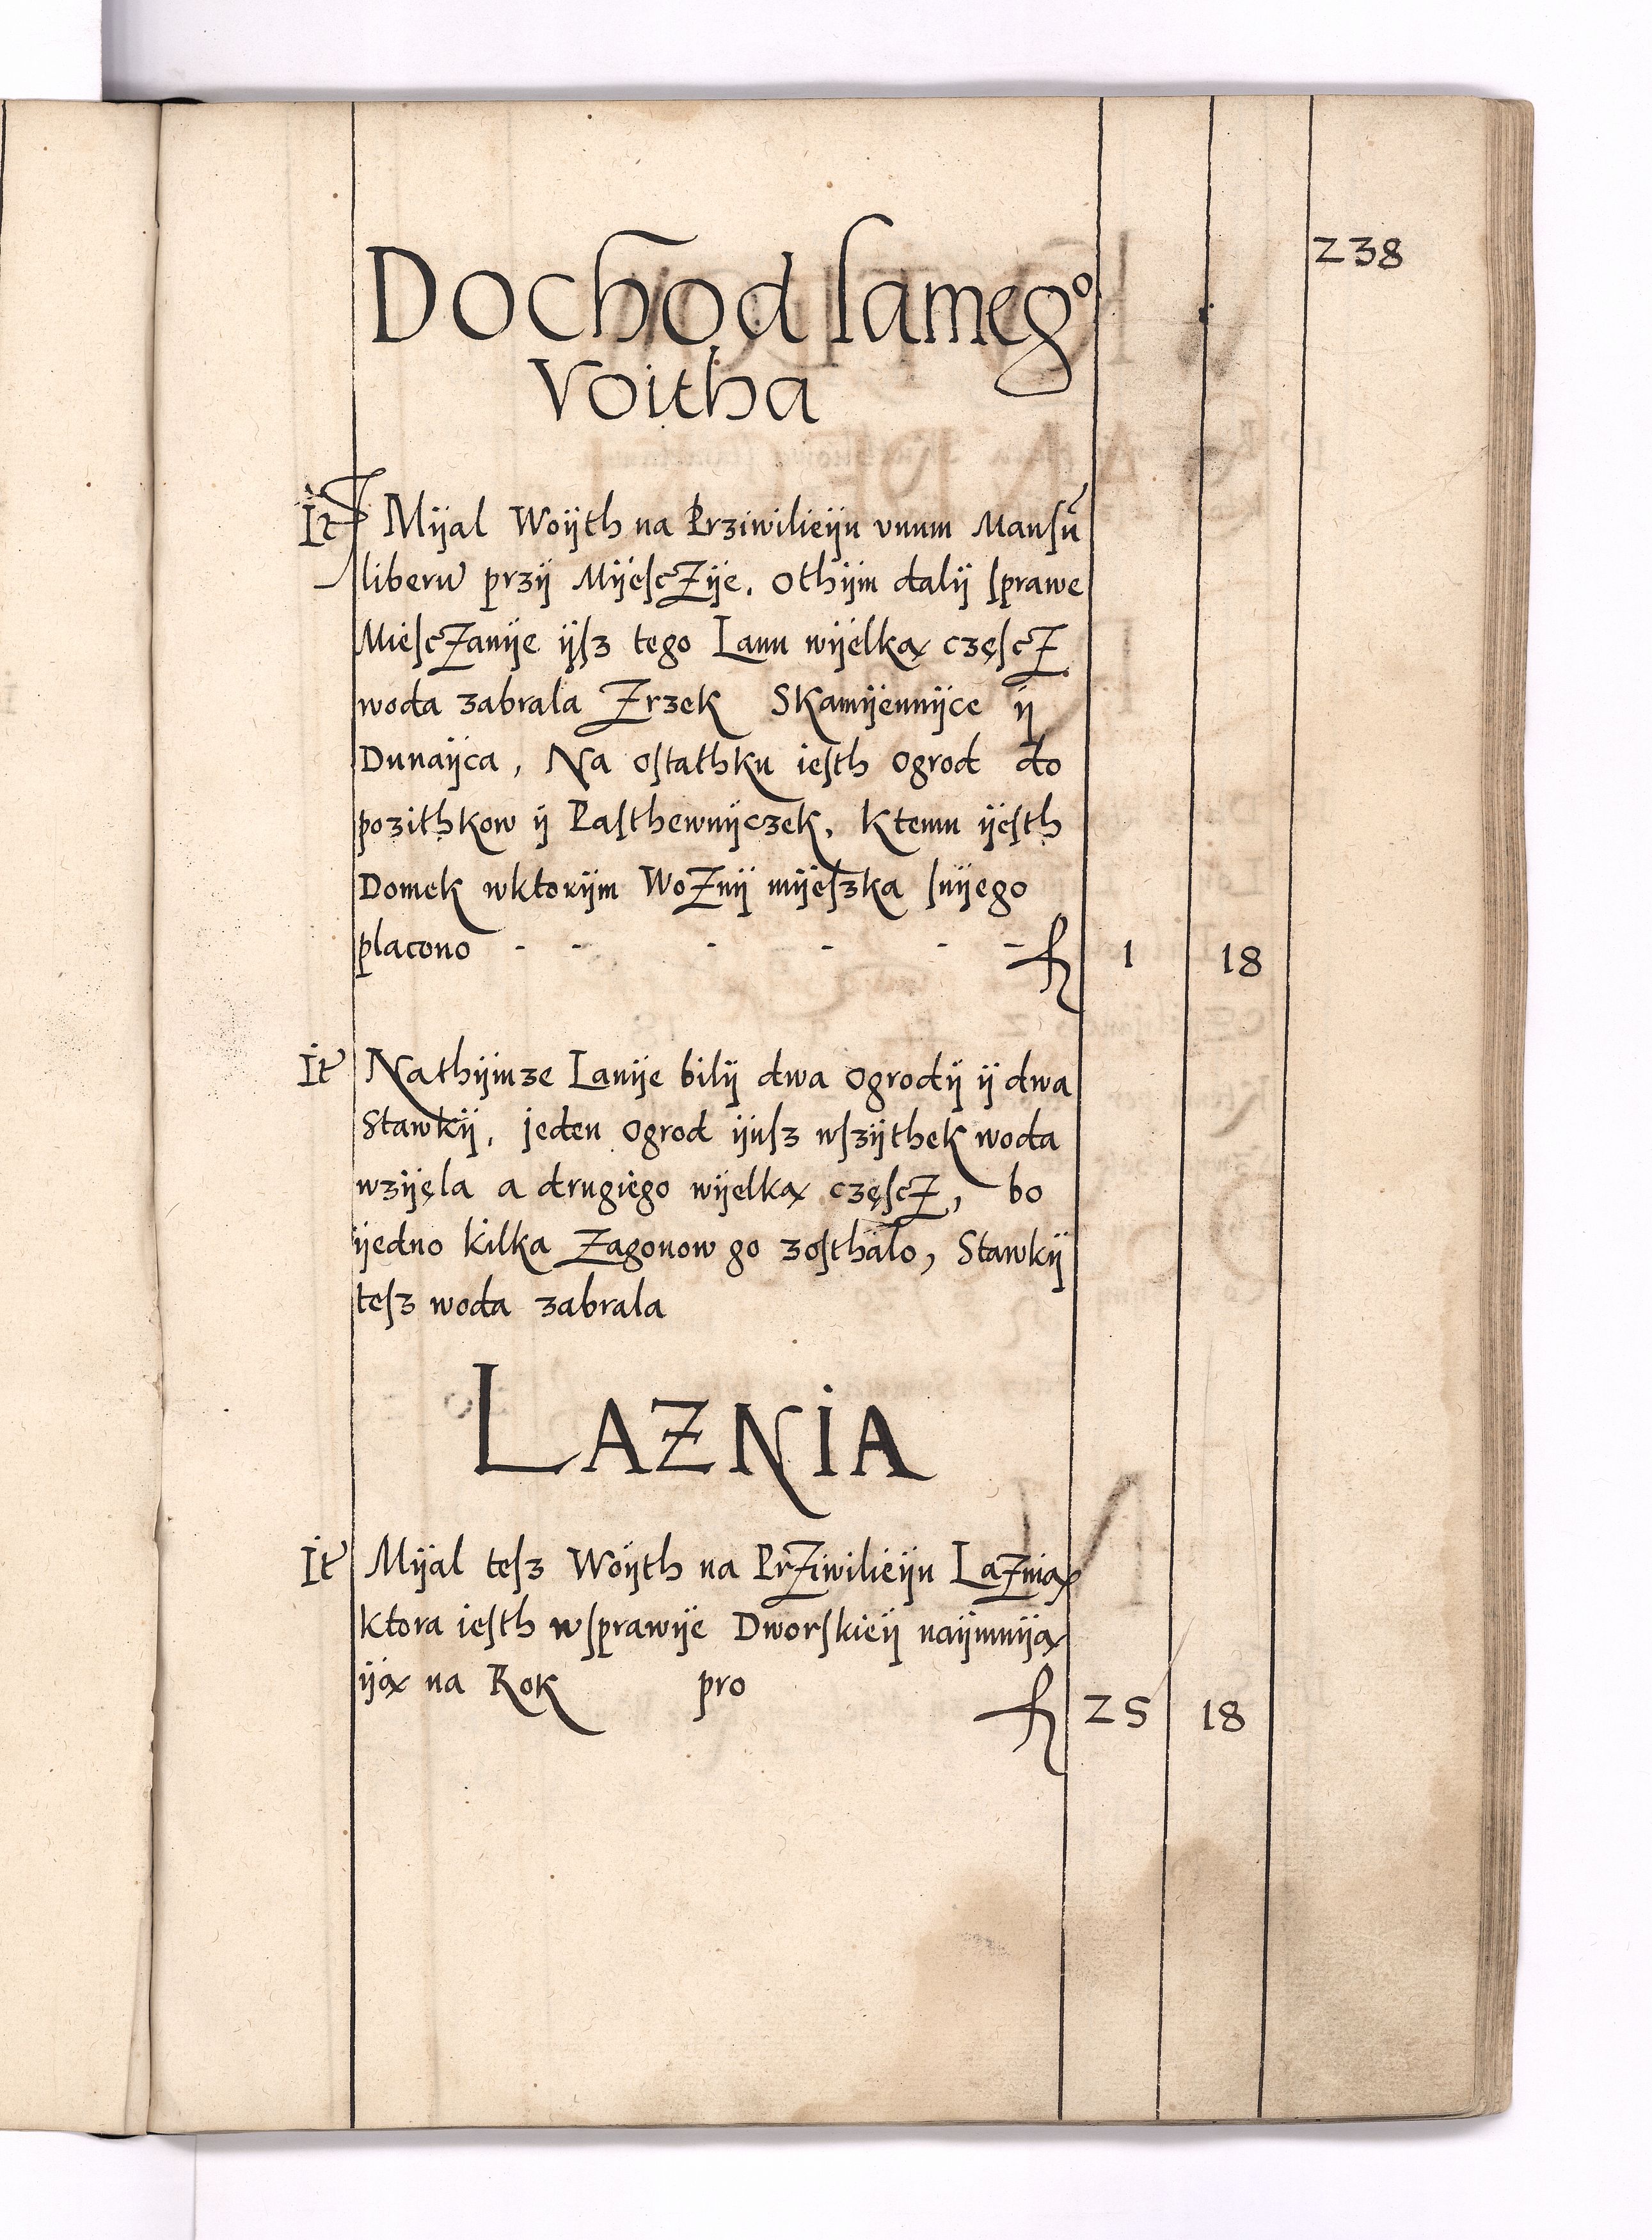 238
Dochod sameg°
Voitha
It Mijal Woijth na Prziwilieiju vnum Mansū
liberu przij MijesczZije. Othijm dalij sprawe
MiescZanije ijsz tego Lanu wijelką częscZ
woda zabrala Zrzek Skamijennijce ij
Dunaijca, Na ostathku iesth Ogrod do
pozithkow ij Pasthewnijczek, Ktemu ijesth
Domek wktorijm WoZnij mijeszka snijego
placono - - - - - - fl 1 18
It Nathijmze Lanije bilij dwa Ogrodij ij dwa
Stawkij, jeden Ogrod ijusz wszijthek woda
wzijęla a drugiego wijelką częscZ, bo
ijedno kilka Zagonow go zosthalo, Stawkij
tesz woda zabrala
LAZNIA
It Mijal tesz Woijth na PrZiwilieiju LaZnią
Ktora iesth wsprawije Dworskieij naijmniją
iją na Rok pro fl 25 18